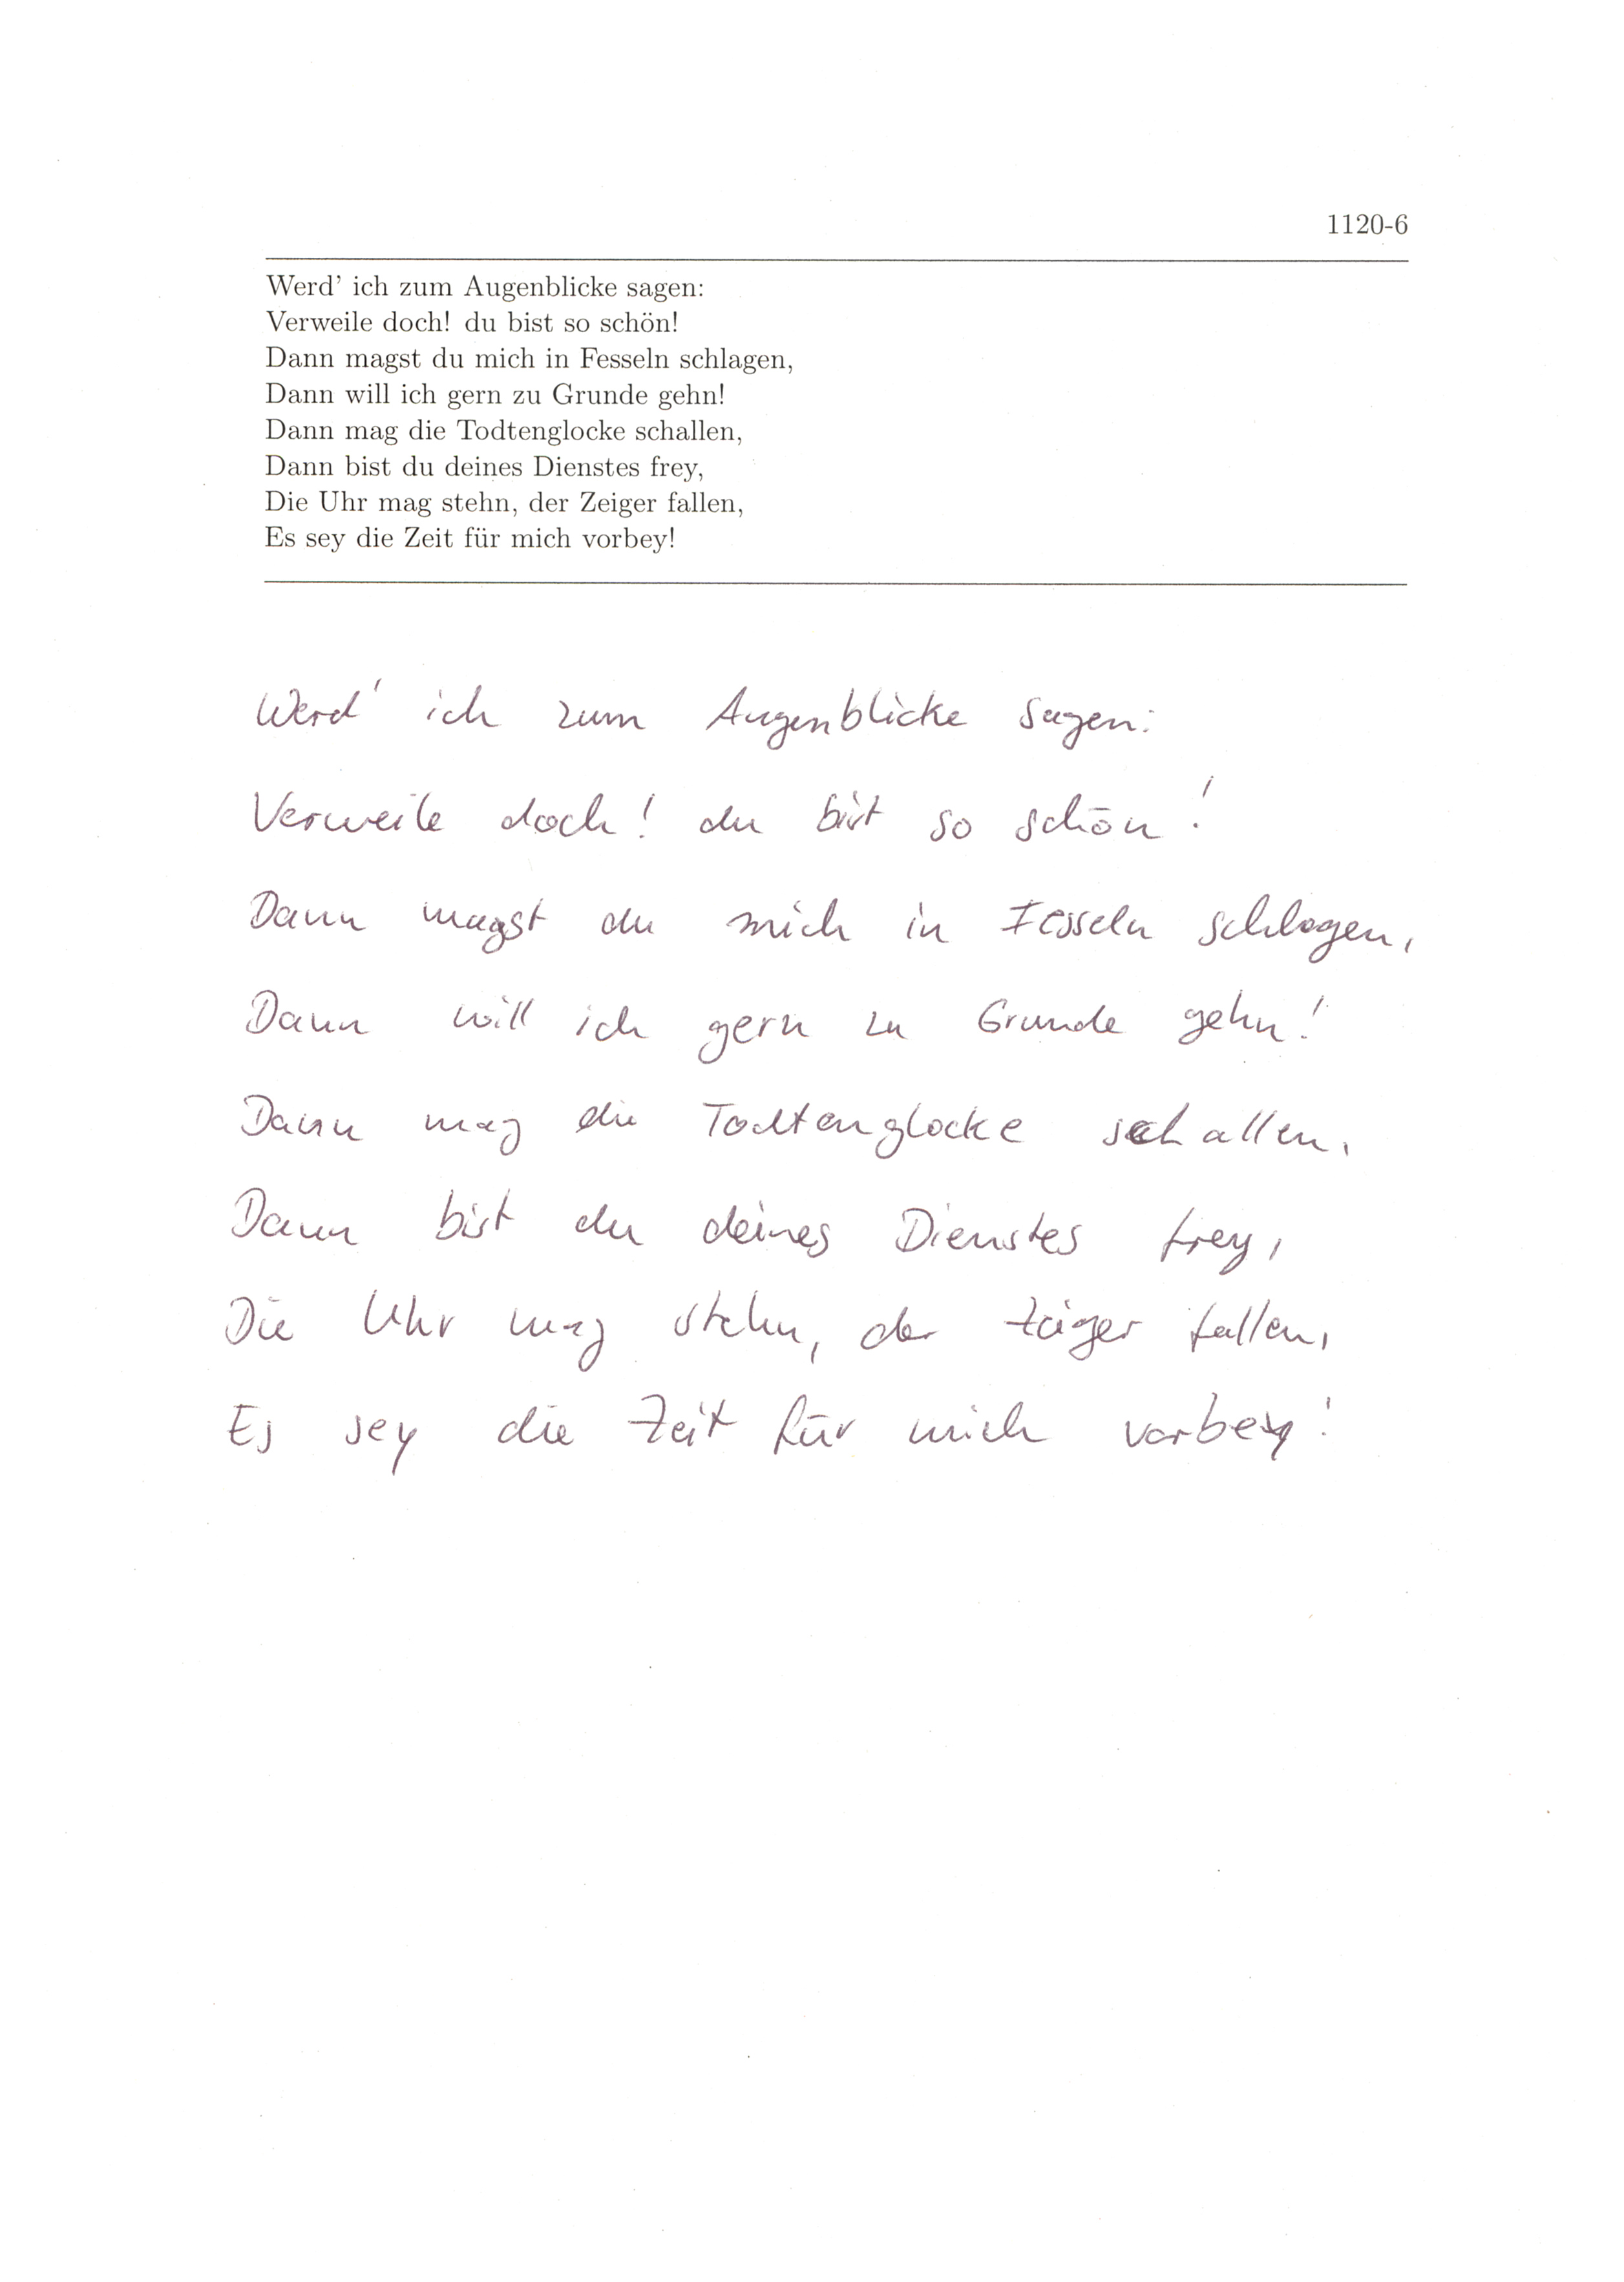 1120-6
Werd' ich zum Augenblicke sagen:
Verweile doch! du bist so schön!
Dann magst du mich in Fesseln schlagen,
Dann will ich gern zu Grunde gehn!
Dann mag die Todtenglocke schallen,
Dann bist du deines Dienstes frey,
Die Uhr mag stehn, der Zeiger fallen,
Es sey die Zeit für mich vorbey!
Werd' ich zum Augenblicke sagen:
Verweile doch! du bist so schön!
Dann magst du mich in Fesseln schlagen,
Dann will ich gern zu Grunde gehn!
Dann mag die Todtenglocke schallen,
Dann bist du deines Dienstes frey,
Die Uhr mag stehn, der Zeiger fallen,
Es sey die Zeit für mich vorbey!